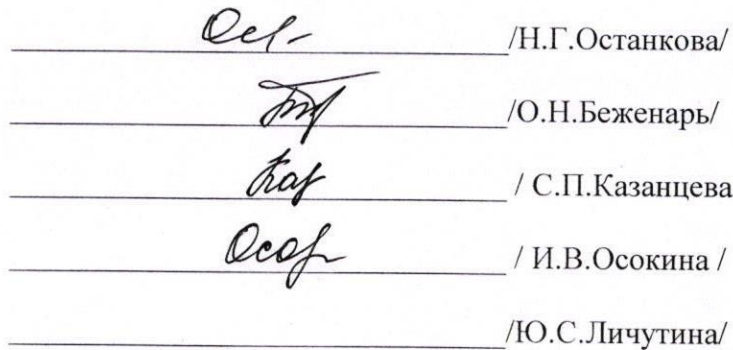 /Н.Г.Останкова/
/О.Н.Беженарь/
/ С.П.Казанцева
/ И.В.Осокина /
/Ю.С.Личутина/